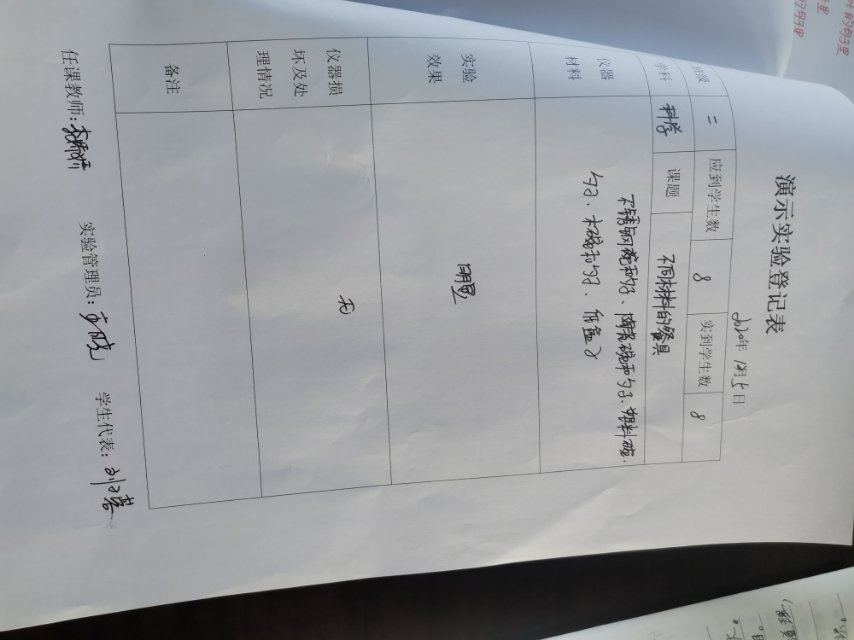 演示实验登记表
2020年 12月5日
班级 二 应到学生数 8 实到学生数 8
学科 科学 课题 不同材料的餐具
仪器材料 不锈钢碗和勺子、陶瓷碗和勺子、塑料碗、
勺子、木碗和勺子、
实验效果 明显
仪器损坏及处理情况 无
备注
任课教师: 实验管理员: 学生代表: